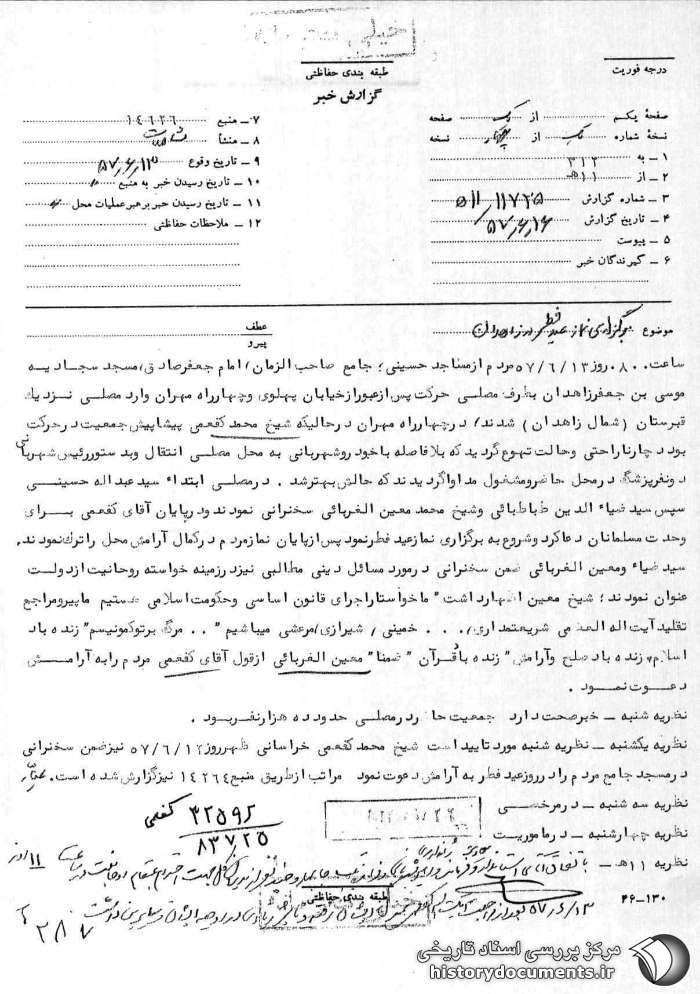 خیلی
طبقه بندی حفاظتی
گزارش خبر
درجه فوریت
صفحهٔ یکم از یک صفحه
نسخهٔ شماره یک از چهار نسخه
۱ ـ به ۳۱۲
۲ ـ از ۱۱ﻫ
۳ ـ شماره گزارش ۱۱۷۲۵/۵۱۱
۴ ـ تاریخ گزارش ۵۷٫۶٫۱۶
۵ ـ پیوست
۶ ـ گیرندگان خبر
۷ ـ منبع ۱۴۶۲۶
۸ ـ منشأ
۹ ـ تاریخ وقوع ۵۷٫۶٫۱۳
۱۰ ـ تاریخ رسیدن خبر به منبع
۱۱ ـ تاریخ رسیدن خبر برهبر عملیات محل
۱۲ ـ ملاحظات حفاظتی
موضوع برگزاری نماز عید فطر در زاهدان
عطف
پیرو
ساعت ۰۸۰۰ روز ۵۷/۶/۱۳ مردم از مساجد حسینی؛ جامع صاحب الزمان، امام جعفر صادق، مسجد سجادیه
موسی بن جعفر زاهدان بطرف مصلی حرکت پس از عبور از خیابان پهلوی و چهارراه مهران وارد مصلی نزدیک
قبرستان (شمال زاهدان) شدند، در چهارراه مهران در حالیکه شیخ محمد کفعمی پیشاپیش جمعیت در حرکت
بود دچار ناراحتی و حالت تهوع گردید که بلافاصله با خودرو شهربانی به محل مصلی انتقال و بدستور رئیس شهربانی
دو نفر پزشک در محل حاضر و مشغول مداوا گردیدند که حالش بهتر شد . در مصلی ابتداء سید عبداله حسینی
سپس سید ضیاء الدین طباطبائی و شیخ محمد معین الغربائی سخنرانی نمودند و در پایان آقای کفعمی برای
وحدت مسلمانان دعا کرد و شروع به برگزاری نماز عید فطر نمود پس از پایان نماز مردم در کمال آرامش محل را ترک نمودند.
سید ضیاء و معین الغربائی ضمن سخنرانی در مورد مسائل دینی مطالبی نیز در زمینه خواسته روحانیت از دولت
عنوان نمودند؛ شیخ معین اظهار داشت " ما خواستار اجرای قانون اساسی و حکومت اسلامی هستیم ما پیرو مراجع
تقلید آیت اله العظمی شریعتمداری، . . . خمینی، شیرازی، مرعشی میباشیم " . . مرگ بر تو کمونیسم " زنده باد
اسلام، زنده باد صلح و آرامش " زنده با قرآن " ضمنا" معین الغربائی از قول آقای کفعمی مردم را به آرامش
دعوت نمود .
نظریه شنبه ـ خبر صحت دارد جمعیت حاضر در مصلی حدود ده هزار نفر بود .
نظریه یکشنبه ـ نظریه شنبه مورد تایید است شیخ محمد کفعمی خراسانی ظهر روز ۵۷/۶/۱۲ نیز ضمن سخنرانی
در مسجد جامع مردم را در روز عید فطر به آرامش دعوت نمود مراتب از طریق منبع ۱۴۲۶۴ نیز گزارش شده است.
نظریه سه شنبه ـ در مرخصی
نظریه چهارشنبه ـ در ماموریت
کفعمی
۳۲۵۹۲
۸۳۷۲۵
نظریه ۱۱ﻫ ـ
۱۱ روز
۵۷/۶/۱۳
طبقه بندی حفاظتی
۴۶-۱۳۰
۲۸۷
مرکز بررسی اسناد تاریخی
historydocuments.ir